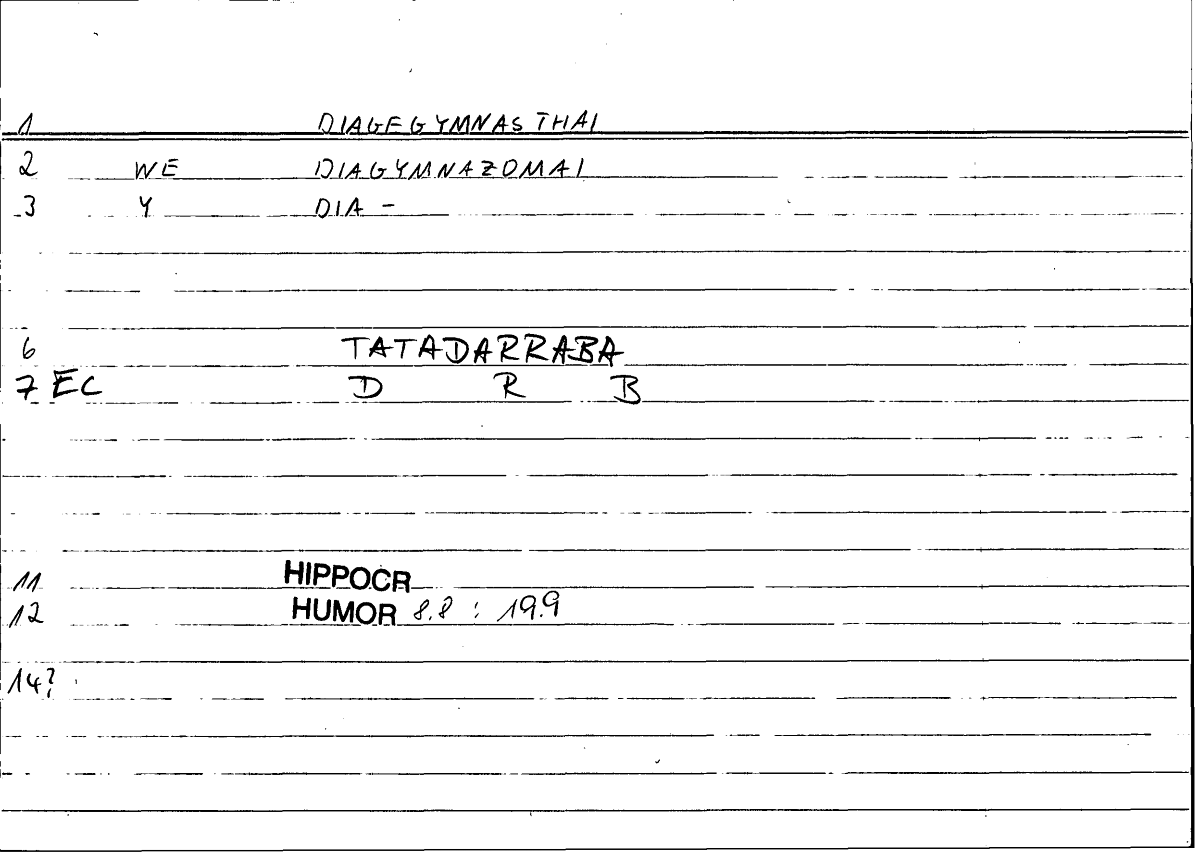 1 DIAGEGYMNASTHAI
2 WE DIAGYMNAZOMAI
3 Y DIA -
6 TATADARRABA
7 EC D R B
11 HIPPOCR
12 HUMOR 8.8 : 19.9
14?